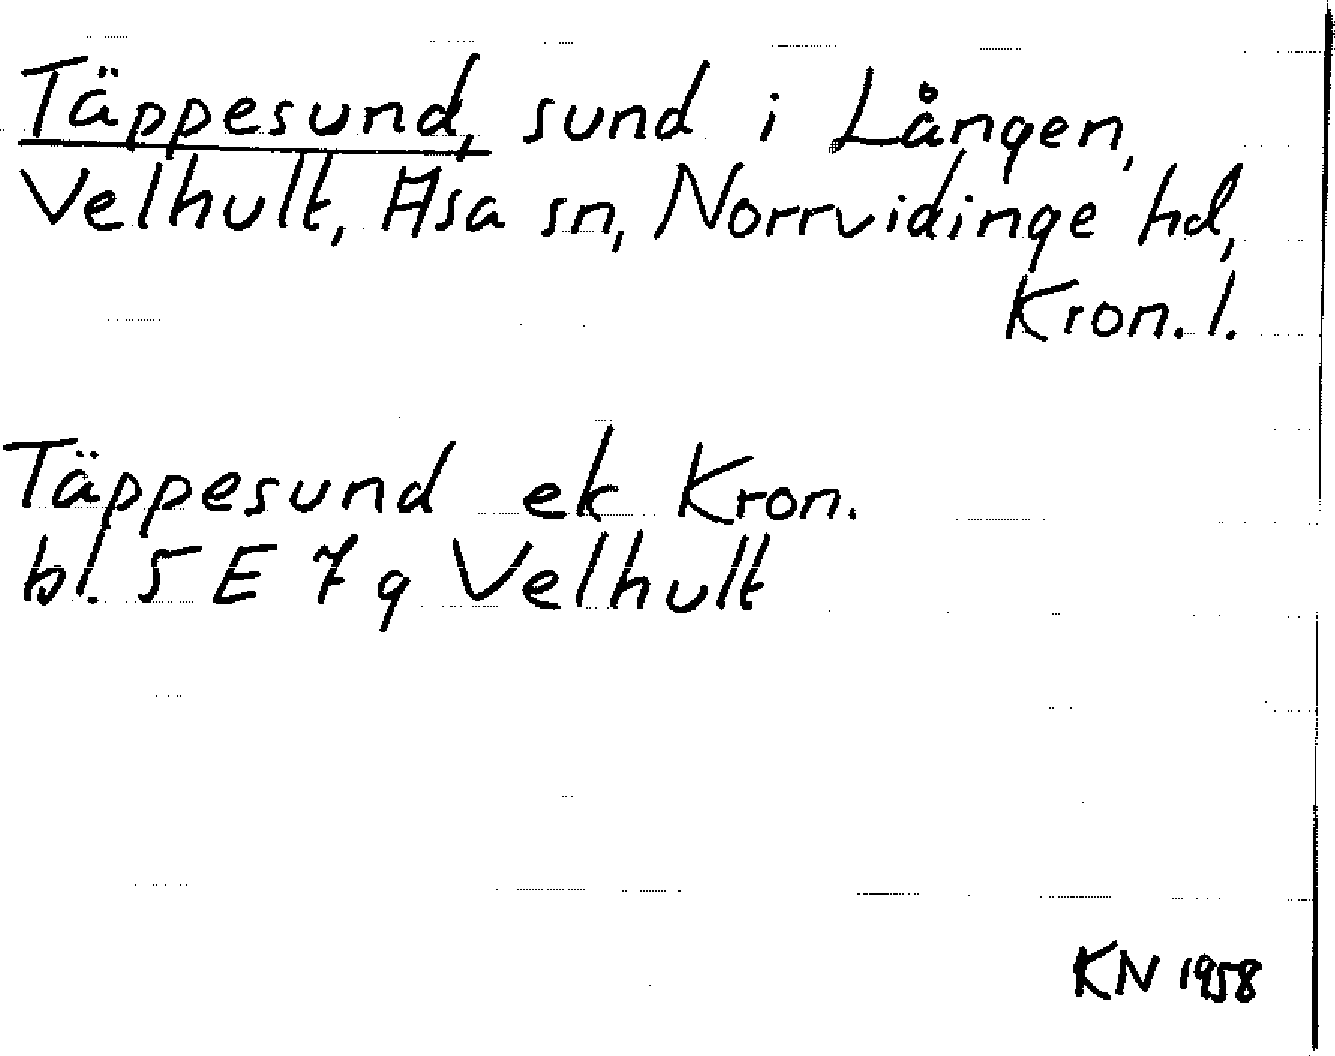 Täppesund, sund i Lången,
Velhult, Asa sn, Norrvidinge hd,
Kron. l.
Täppesund ek Kron.
bl. 5 E 7 g Velhult
KN 1958